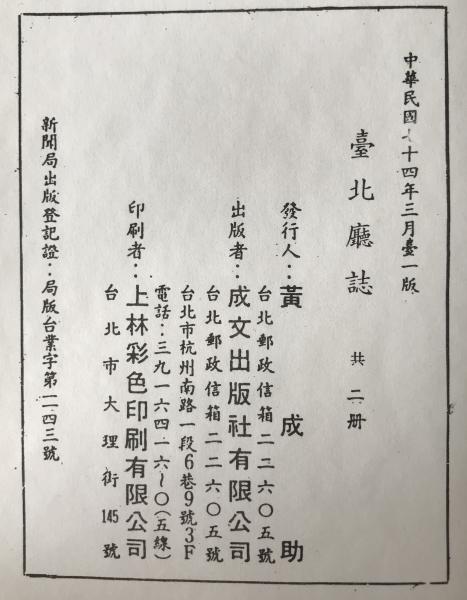 中華民國七十四年三月臺一版
臺北廳誌 共二册
發行人：黃成助
台北郵政信箱二二六〇五號
出版者：成文出版社有限公司
台北郵政信箱二二六〇五號
台北市杭州南路一段6巷9號3F
電話：三九一六四一六～〇（五線）
印刷者：上林彩色印刷有限公司
台北市大理街145號
新聞局出版登記證：局版台業字第一一四三號